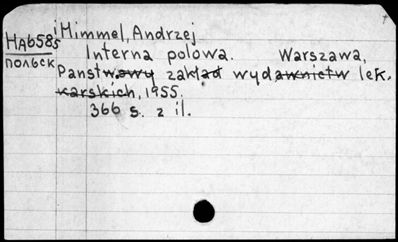 Himmel, Andrzej
НАб585
польск
Interna polowa. Warszawa,
Panstwowy zakład wydawnictw lek.
karskich, 1955.
366 s. z il.